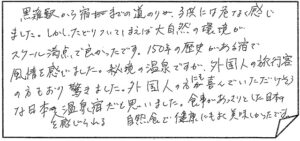 黒薙駅から宿までの道のりが、子供には危なく感じ
ました。しかし、たどりついてしまえば大自然の環境が
スケール満点で良かったです。150年の歴史がある宿で
風情を感じました。秘境の温泉ですが、外国人の旅行客
の方もおり驚きました。外国人の方にも喜んでいただけそう
な日本の温泉宿だと思いました。食事があっさりとした日本
を感じられる 自然食で健康にもよく美味しかったです。